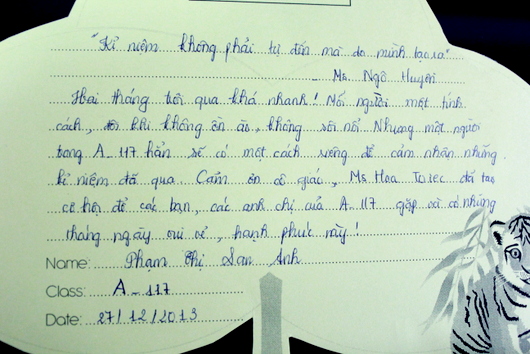 "Kỉ niệm không phải tự đến mà do mình tạo ra"
Ms. Ngô Huyền
Hai tháng trôi qua khá nhanh! Mỗi người một tính
cách, đôi khi không ồn ào, không sôi nổi. Nhưng một người
trong A-117 hẳn sẽ có một cách riêng để cảm nhận những
kỉ niệm đã qua. Cảm ơn cô giáo, Ms Hoa Toiec đã tạo
cơ hội để các bạn, các anh chị của A-117 gặp và có những
tháng ngày vui vẻ, hạnh phúc này!
Name: Phạm Thị Lan Anh
Class: A-117
Date: 27/12/2013